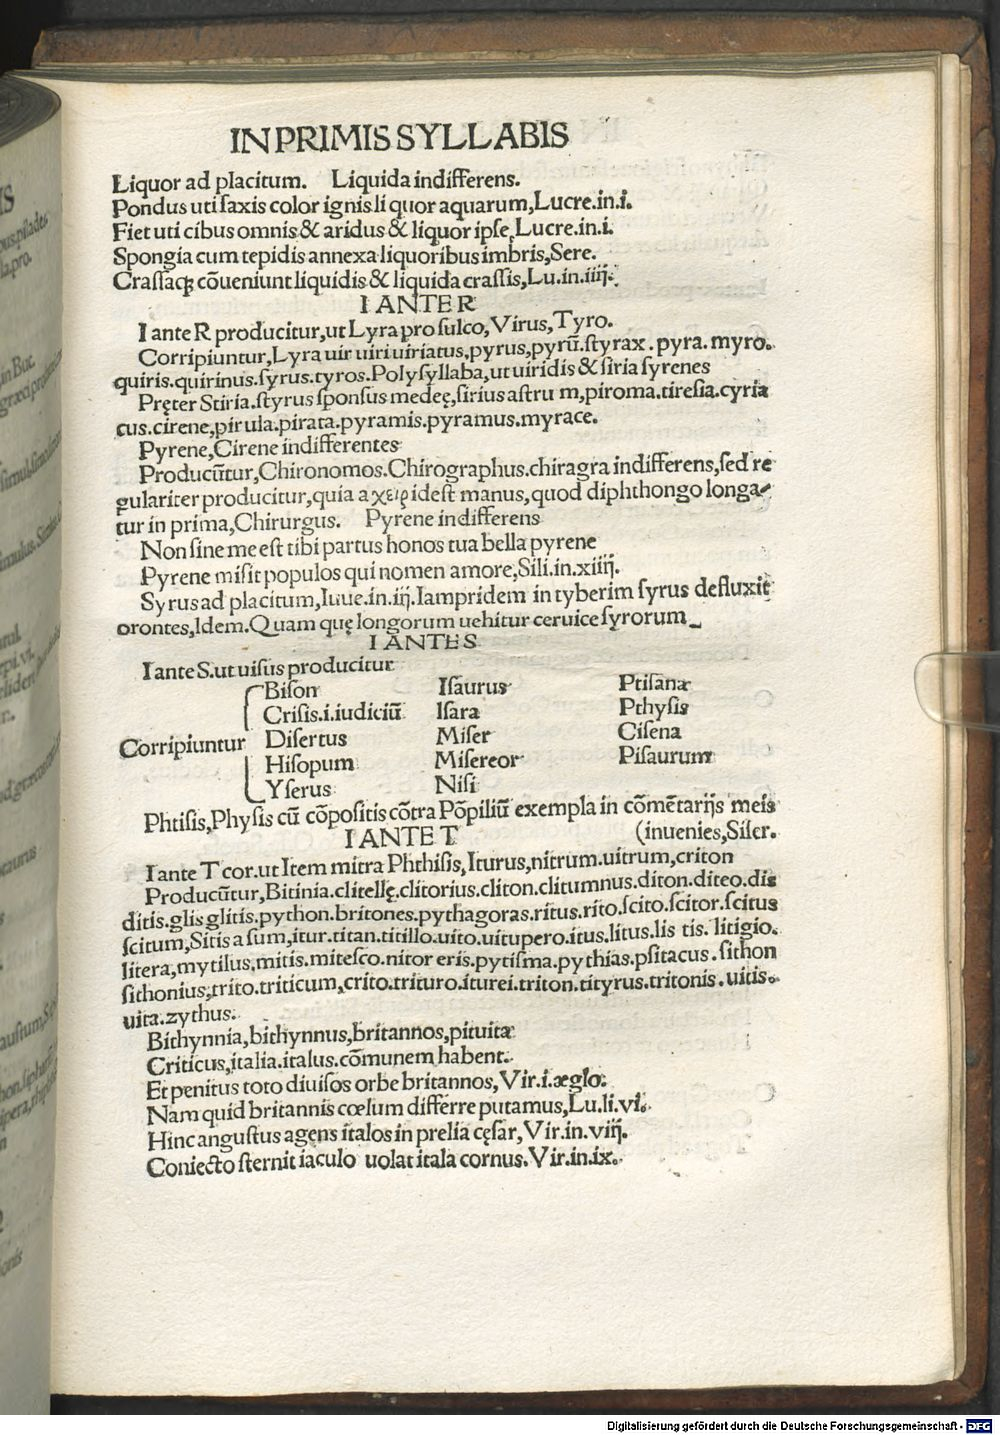 IN PRIMIS SYLLABIS
Liquor ad placitum. Liquida indifferens.
Pondus uti ſaxis color ignis li quor aquarum, Lucre.in.i.
Fiet uti cibus omnis & aridus & liquor ipſe, Lucre.in.i.
Spongia cum tepidis annexa liquoribus imbris, Sere.
Craſſaqꝫ cōueniunt liquidis & liquida craſſis, Lu.in.iiij.
I ANTE R
I ante R producitur, ut Lyra pro ſulco, Virus, Tyro.
Corripiuntur, Lyra uir uiri uiriatus, pyrus, pyrū. ſtyrax. pyra. myro.
quiris. quirinus. ſyrus. tyros. Polyſyllaba, ut uiridis & ſiria ſyrenes
Pręter Stiria. ſtyrus ſponſus medeę, ſirius aſtru m, piroma. tireſia. cyria
cus. cirene, pirula. pirata. pyramis. pyramus. myrace.
Pyrene, Cirene indifferentes
Producūtur, Chironomos. Chirographus. chiragra indifferens, ſed re
gulariter producitur, quia a χειρ ideſt manus, quod diphthongo longa-
tur in prima, Chirurgus. Pyrene indifferens
Non ſine me eſt tibi partus honos tua bella pyrene
Pyrene miſit populos qui nomen amore, Sili.in.xiiij.
Syrus ad placitum, Iuue.in.iij. Iampridem in tyberim ſyrus defluxit
orontes, Idem. Quam quę longorum uehitur ceruice ſyrorum
I ANTE S
I ante S. ut uiſus producitur
Biſon Iſaurus Ptiſana
Criſis.i.iudiciū Iſara Pthyſis
Corripiuntur Diſertus Miſer Ciſena
Hiſopum Miſereor Piſaurum
Yſerus Niſi
Phtiſis, Phyſis cū cōpoſitis cōtra Pōpiliū exempla in cōmētarijs meis
I ANTE T (inuenies, Siler.
I ante T cor. ut Item mitra Phthiſis, Iturus, nitrum. uitrum, criton
Producūtur, Bitinia. clitellę. clitorius. cliton. clitumnus. diton. diteo. dis
ditis. glis glitis. python. britones. pythagoras. ritus. rito. ſcito. ſcitor. ſcitus
ſcitum, Sitis a ſum, itur. titan. titillo. uito. uitupero. itus. litus. lis tis. litigio.
litera, mytilus, mitis. miteſco. nitor eris. pytiſma. pythias. pſitacus. ſithon
ſithonius, trito. triticum, crito. trituro. iturei. triton. tityrus. tritonis. uitis.
uita. zythus.
Bithynnia, bithynnus, britannos, pituita
Criticus, italia. italus. cōmunem habent.
Et penitus toto diuiſos orbe britannos, Vir.i.æglo.
Nam quid britannis cœlum differre putamus, Lu.li.vi.
Hinc anguſtus agens italos in prelia cęſar, Vir.in.viij.
Coniecto ſternit iaculo uolat itala cornus. Vir.in.ix.
Digitalisierung gefördert durch die Deutsche Forschungsgemeinschaft - DFG